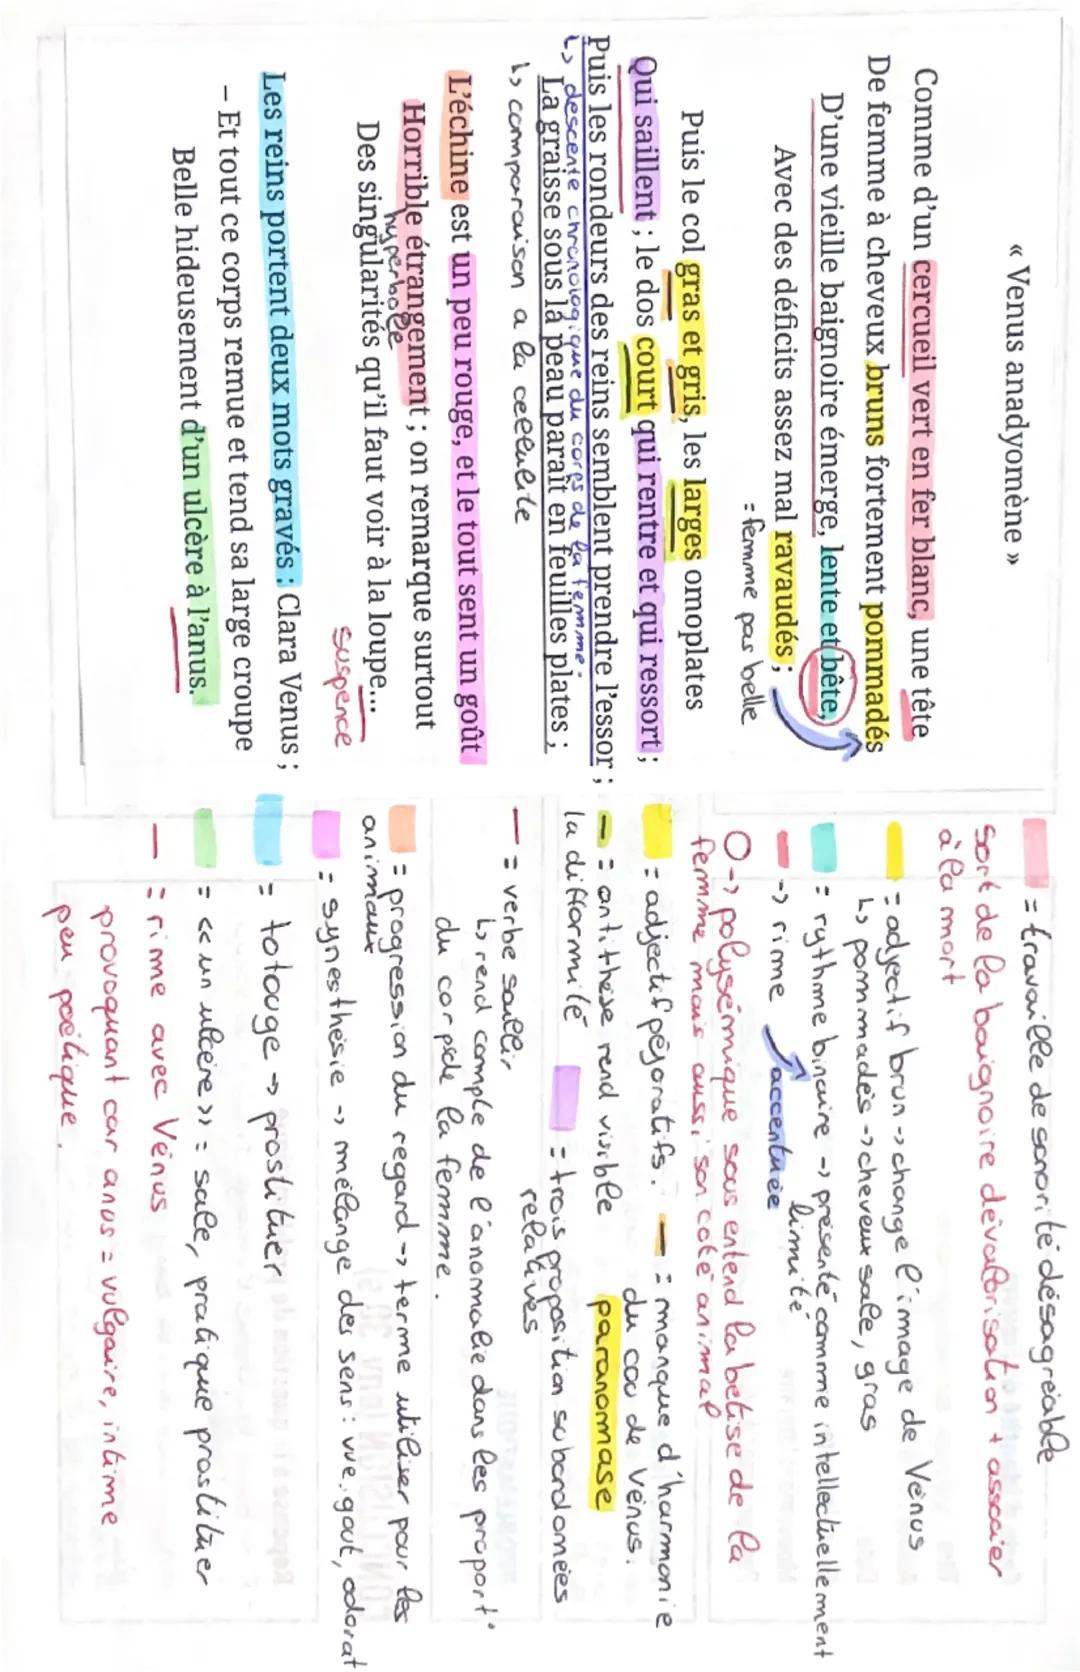 « Venus anadyomène »
Comme d'un cercueil vert en fer blanc, une tête
De femme à cheveux bruns fortement pommadés
D'une vieille baignoire émerge, lente et bête,
Avec des déficits assez mal ravaudés ;
= femme pas belle
Puis le col gras et gris, les larges omoplates
Qui saillent ; le dos court qui rentre et qui ressort ;
Puis les rondeurs des reins semblent prendre l'essor ;
↳ descente chronologique du corps de la femme.
La graisse sous la peau paraît en feuilles plates ;
↳ comparaison a la cellulite
L'échine est un peu rouge, et le tout sent un goût
Horrible étrangement ; on remarque surtout
hyperbole
Des singularités qu'il faut voir à la loupe...
suspence
Les reins portent deux mots gravés : Clara Venus ;
– Et tout ce corps remue et tend sa large croupe
Belle hideusement d'un ulcère à l'anus.
= travaille de sonorité désagréable
sort de la baignoire dévalorisation + associer
à la mort
= adjectif brun -> change l'image de Vénus
↳ pommadés -> cheveux sale, gras
= rythme binaire -> présenté comme intellectuellement
limité
-> rime accentuée
O -> polysémique sous entend la betise de la
femme mais aussi son coté animal
= adjectif péjoratifs. = manque d'harmonie
du cou de Vénus.
= antithèse rend visible paranomase
la difformité = trois proposition subordonées
relatives
= verbe saillir
↳ rend compte de l'anomalie dans les proport°
du corps de la femme.
= progression du regard -> terme utiliser pour les
animaux
= synesthésie -> mélange des sens : vue, gout, odorat
= totouge -> prostituer
= « un ulcère » = sale, pratique prostituer
= rime avec Vénus
provoquant car anus = vulgaire, intime
peu poétique.